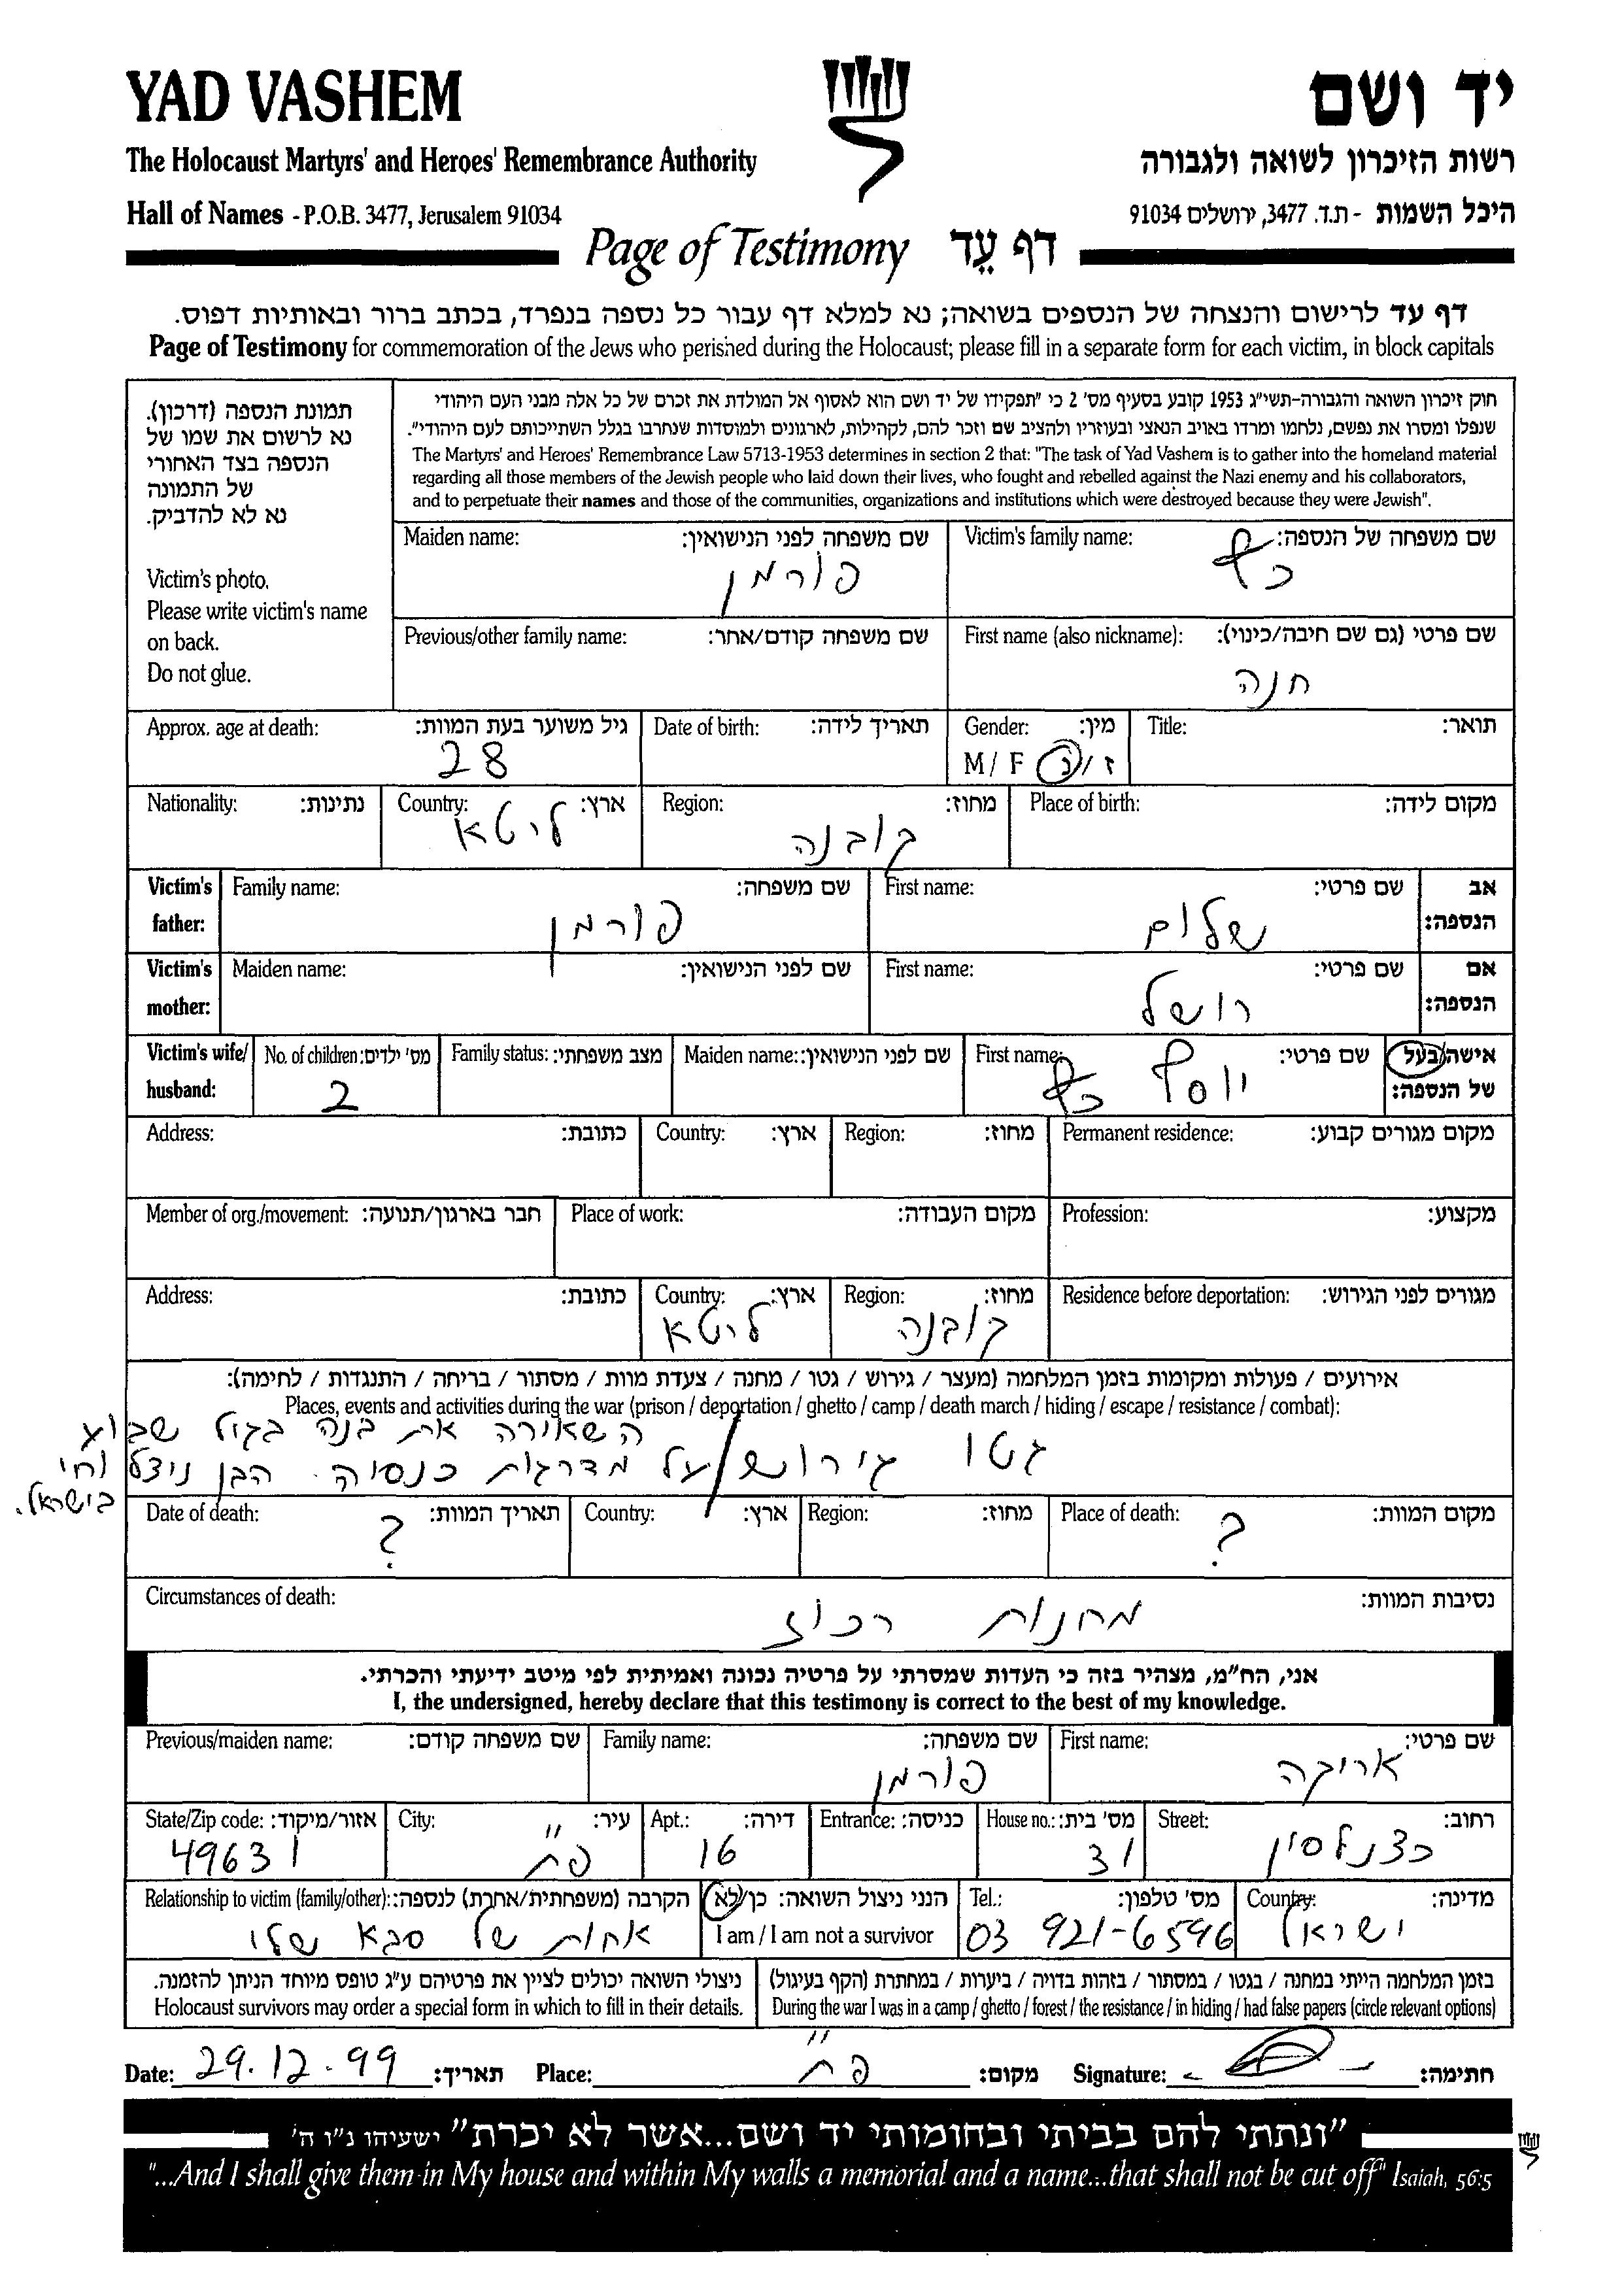 YAD VASHEM
יד ושם
The Holocaust Martyrs' and Heroes' Remembrance Authority
רשות הזיכרון לשואה ולגבורה
Hall of Names - P.O.B. 3477, Jerusalem 91034
היכל השמות - ת.ד. 3477, ירושלים 91034
Page of Testimony דף עֵד
דף עד לרישום והנצחה של הנספים בשואה; נא למלא דף עבור כל נספה בנפרד, בכתב ברור ובאותיות דפוס.
Page of Testimony for commemoration of the Jews who perished during the Holocaust; please fill in a separate form for each victim, in block capitals
תמונת הנספה (דרכון).
נא לרשום את שמו של
הנספה בצד האחורי
של התמונה
נא לא להדביק.
Victim's photo.
Please write victim's name
on back.
Do not glue.
חוק זיכרון השואה והגבורה-תשי"ג 1953 קובע בסעיף מס' 2 כי "תפקידו של יד ושם הוא לאסוף אל המולדת את זכרם של כל אלה מבני העם היהודי
שנפלו ומסרו את נפשם, נלחמו ומרדו באויב הנאצי ובעוזריו ולהציב שם וזכר להם, לקהילות, לארגונים ולמוסדות שנחרבו בגלל השתייכותם לעם היהודי".
The Martyrs' and Heroes' Remembrance Law 5713-1953 determines in section 2 that: "The task of Yad Vashem is to gather into the homeland material
regarding all those members of the Jewish people who laid down their lives, who fought and rebelled against the Nazi enemy and his collaborators,
and to perpetuate their names and those of the communities, organizations and institutions which were destroyed because they were Jewish".
Victim's family name: שם משפחה של הנספה:
כץ
Maiden name: שם משפחה לפני הנישואין:
פורמן
First name (also nickname): שם פרטי (גם שם חיבה/כינוי):
חנה
Previous/other family name: שם משפחה קודם/אחר:
Title: תואר:
Gender: מין:
M / F ז / נ
Date of birth: תאריך לידה:
Approx. age at death: גיל משוער בעת המוות:
28
Place of birth: מקום לידה:
Region: מחוז:
קובנה
Country: ארץ:
ליטא
Nationality: נתינות:
Victim's father: אב הנספה:
First name: שם פרטי:
שלום
Family name: שם משפחה:
פורמן
Victim's mother: אם הנספה:
First name: שם פרטי:
רושל
Maiden name: שם לפני הנישואין:
Victim's wife/ husband: אישה/בעל של הנספה:
First name: שם פרטי:
יוסף כץ
Maiden name: שם לפני הנישואין:
Family status: מצב משפחתי:
No. of children: מס' ילדים:
2
Permanent residence: מקום מגורים קבוע:
Region: מחוז:
Country: ארץ:
Address: כתובת:
Profession: מקצוע:
Place of work: מקום העבודה:
Member of org./movement: חבר בארגון/תנועה:
Residence before deportation: מגורים לפני הגירוש:
Region: מחוז:
קובנה
Country: ארץ:
ליטא
Address: כתובת:
אירועים / פעולות ומקומות בזמן המלחמה (מעצר / גירוש / גטו / מחנה / צעדת מוות / מסתור / בריחה / התנגדות / לחימה):
Places, events and activities during the war (prison / deportation / ghetto / camp / death march / hiding / escape / resistance / combat):
גטו גירוש / השאירה את בנה בגיל שבוע
על מדרגות כנסיה. הבן ניצל וחי
בישראל.
Place of death: מקום המוות:
?
Region: מחוז:
Country: ארץ:
Date of death: תאריך המוות:
?
Circumstances of death: נסיבות המוות:
מחנות רכוז
אני, הח"מ, מצהיר בזה כי העדות שמסרתי על פרטיה נכונה ואמיתית לפי מיטב ידיעתי והכרתי.
I, the undersigned, hereby declare that this testimony is correct to the best of my knowledge.
First name: שם פרטי:
אריקה
Family name: שם משפחה:
פורמן
Previous/maiden name: שם משפחה קודם:
Street: רחוב:
כצנלסון
House no.: מס' בית:
31
Entrance: כניסה:
Apt.: דירה:
16
City: עיר:
פ"ת
State/Zip code: אזור/מיקוד:
49631
Country: מדינה:
ישראל
Tel.: מס' טלפון:
03 921-6596
הנני ניצול השואה: כן/לא
I am / I am not a survivor
Relationship to victim (family/other): הקרבה (משפחתית/אחרת) לנספה:
אחות של סבא שלי
בזמן המלחמה הייתי במחנה / בגטו / במסתור / בזהות בדויה / ביערות / במחתרת (הקף בעיגול)
During the war I was in a camp / ghetto / forest / the resistance / in hiding / had false papers (circle relevant options)
ניצולי השואה יכולים לציין את פרטיהם ע"ג טופס מיוחד הניתן להזמנה.
Holocaust survivors may order a special form in which to fill in their details.
Date: 29.12.99 תאריך: Place: פ"ת מקום: Signature: חתימה:
"ונתתי להם בביתי ובחומותי יד ושם...אשר לא יכרת" ישעיהו נ"ו ה'
"...And I shall give them in My house and within My walls a memorial and a name...that shall not be cut off" Isaiah, 56:5